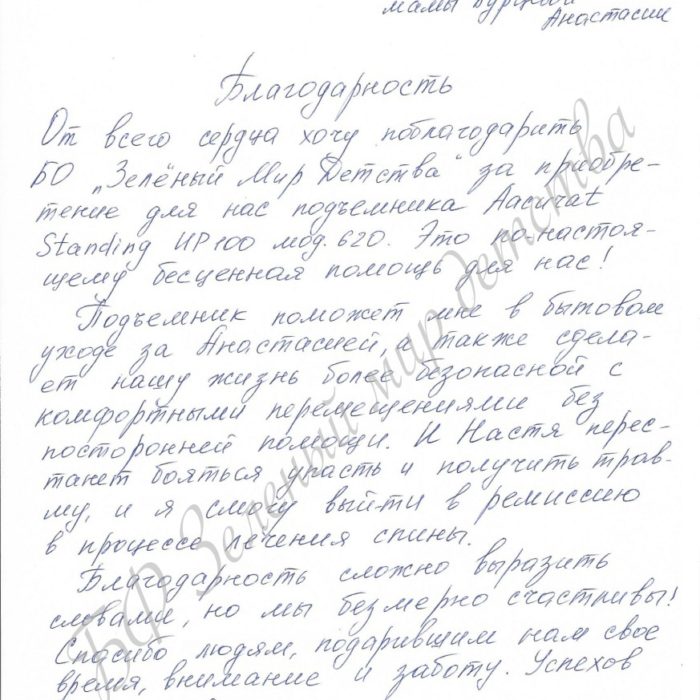 мамы
Анастасии
Благодарность
От всего сердца хочу поблагодарить
БО „Зелёный Мир Детства" за приобре-
тение для нас подъемника Aacurat
Standing UP100 мод. 620. Это по-настоя-
щему бесценная помощь для нас!
Подъемник поможет мне в бытовом
уходе за Анастасией, а также сдела-
ет нашу жизнь более безопасной с
комфортными перемещениями без
посторонней помощи. И Настя перес-
танет бояться упасть и получить трав-
му, и я смогу выйти в ремиссию
в процессе лечения спины.
Благодарность сложно выразить
словами, но мы безмерно счастливы!
Спасибо людям, подарившим нам свое
время, внимание и заботу. Успехов
БФ Зеленый мир детства